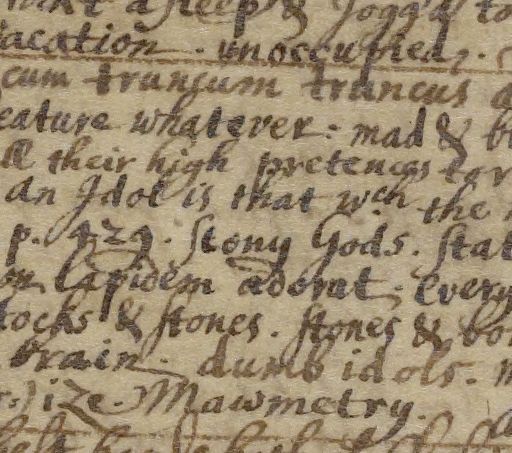 asleep & Jogg'd to
vacation. unoccupied.
cum truncum truncus
eature whatever: mad & b
ll their high pretences
an Idol is that wch the
p. 429. stony Gods. stat
on lapidem adorat. every
tocks & stones. stones & bo
brain. dumb idols.
ize. Mawmetry.